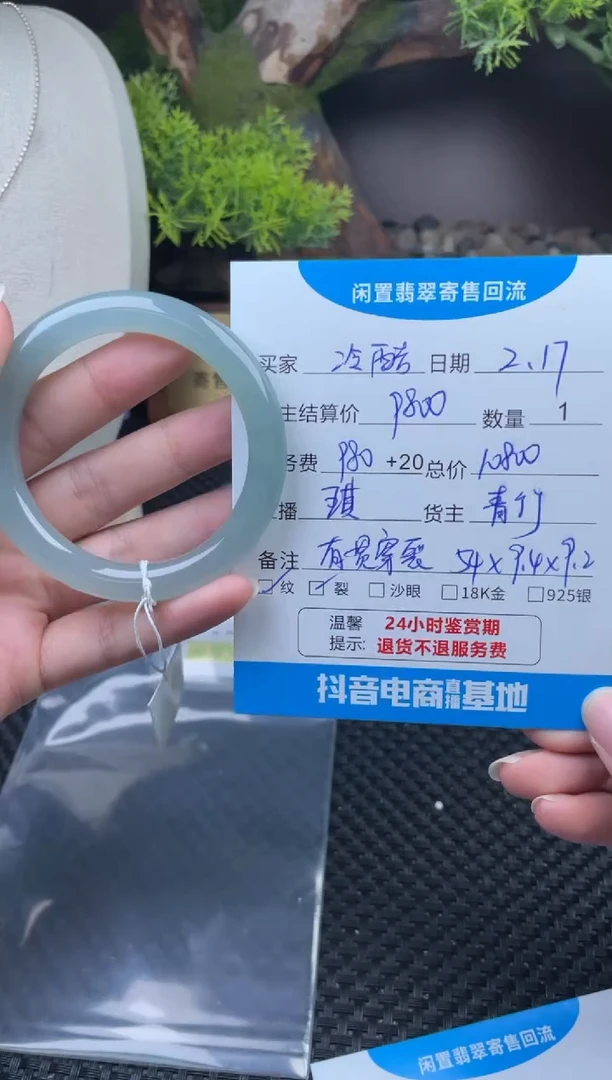 闲置翡翠寄售回流
买家 冷酷 日期 2.17
主结算价 9800 数量 1
务费 980 +20 总价 10800
播 琪 货主 青竹
备注 有贯穿裂 54×9.4×9.2
☑纹 ☑裂 □沙眼 □18K金 □925银
温馨提示: 24小时鉴赏期
退货不退服务费
抖音电商直播基地
寄售
闲置翡翠寄售回流